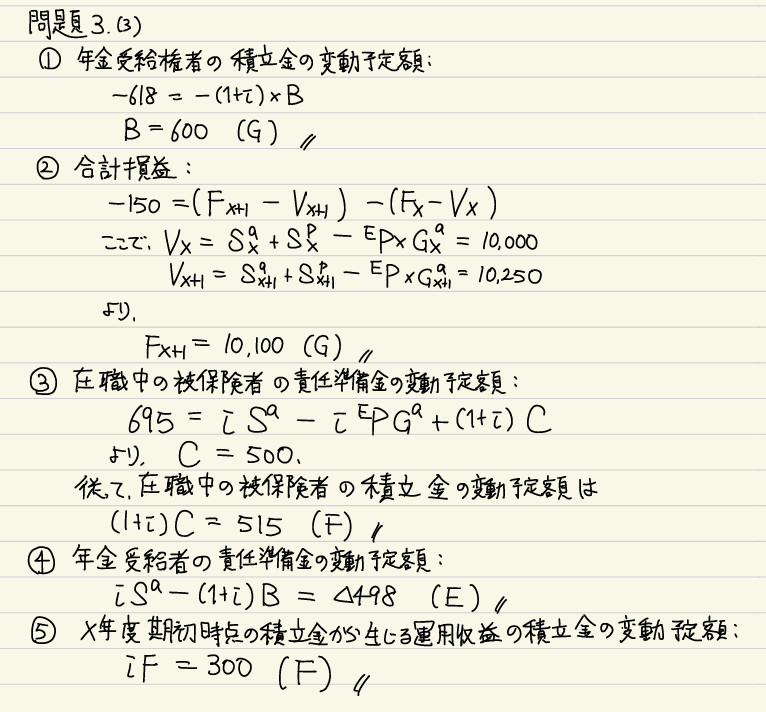 問題3.(3)
① 年金受給権者の積立金の変動予定額:
-618 = -(1+i)×B
B = 600 (G) 〃
② 合計損益:
-150 = (Fx+1 - Vx+1) - (Fx - Vx)
ここで、Vx = S^a_x + S^p_x - ^EP×G^a_x = 10,000
Vx+1 = S^a_x+1 + S^p_x+1 - ^EP×G^a_x+1 = 10,250
より、
Fx+1 = 10,100 (G) 〃
③ 在職中の被保険者の責任準備金の変動予定額:
695 = i S^a - i ^EPG^a + (1+i) C
より、 C = 500、
従って、在職中の被保険者の積立金の変動予定額は
(1+i)C = 515 (F) 〃
④ 年金受給者の責任準備金の変動予定額:
iS^a - (1+i)B = △498 (E) 〃
⑤ X年度期初時点の積立金から生じる運用収益の積立金の変動予定額:
iF = 300 (F) 〃